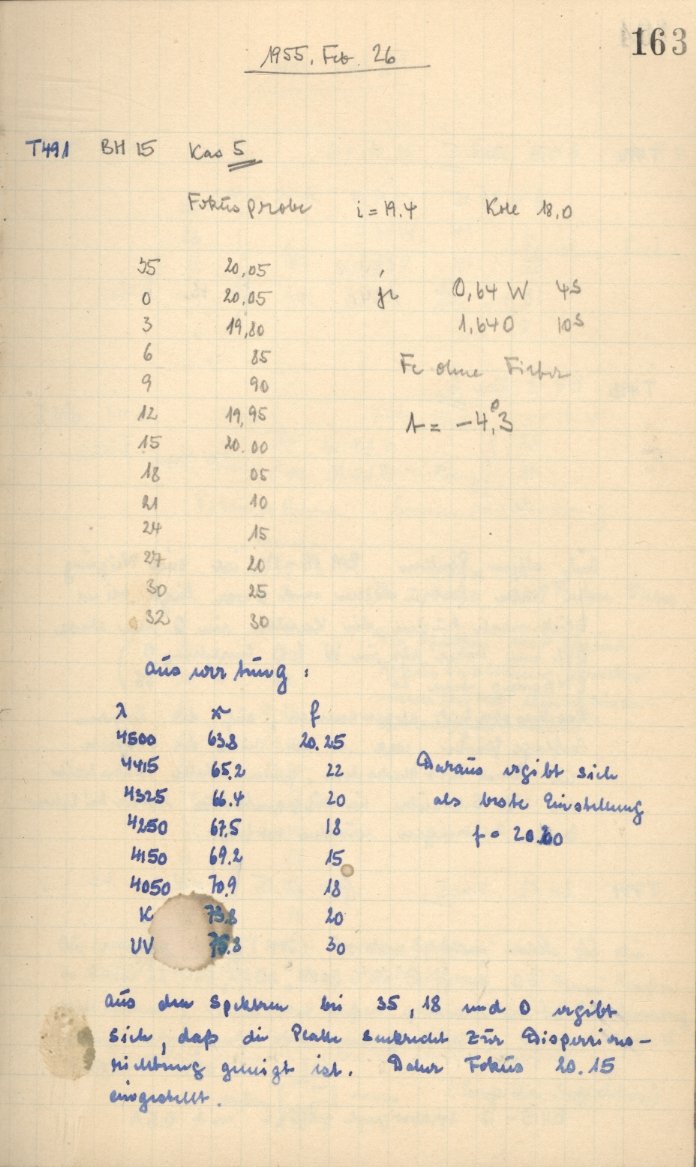 163
1955. Feb. 26
T491 BH 15 Kas 5
Fokusprobe i = 19.4 Kole 18,0
35 20,05 je 0,64 W 4s
0 20,05 1,640 10s
3 19,80
6 85 Fe ohne Filter
9 90
12 19,95 t = -4,°3
15 20.00
18 05
21 10
24 15
27 20
30 25
32 30
Auswertung :
λ r f
4500 63.8 20.25
4415 65.2 22
4325 66.4 20
4250 67.5 18
4150 69.2 15
4050 70.9 18
K 73.8 20
UV 75.8 30
Daraus ergibt sich
als beste Einstellung
f = 20.20
Aus den Spektren bei 35, 18 und 0 ergibt
sich, daß die Platte senkrecht zur Dispersions-
richtung geneigt ist. Daher Fokus 20.15
eingestellt.